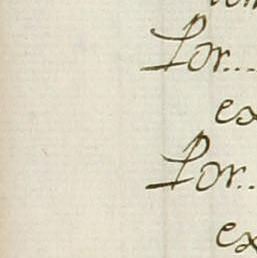 Por...
ex
Por..
ex